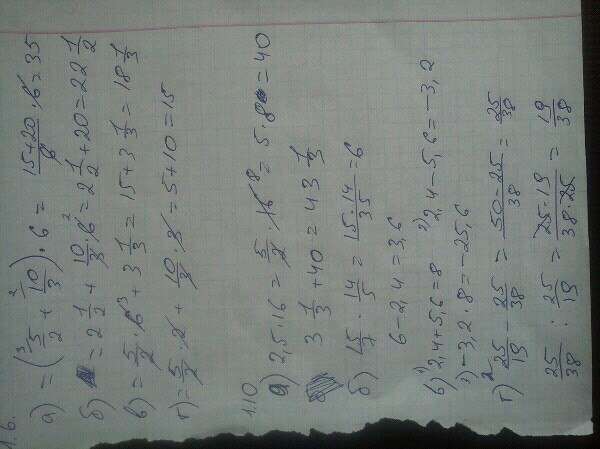 1.6.
а) = (5/2 + 10/3) · 6 = (15+20)/6 · 6 = 35
б) = 2 1/2 + 10/3 · 6 = 2 1/2 + 20 = 22 1/2
в) = 5/2 · 6 + 3 1/3 = 15 + 3 1/3 = 18 1/3
г) = 5/2 · 2 + 10/3 · 3 = 5 + 10 = 15
1.10
а) 2,5 · 16 = 5/2 · 16 = 5 · 8 = 40
3 1/3 + 40 = 43 1/3
б) 15/7 · 14/5 = 15 · 14/35 = 6
6 - 2,4 = 3,6
в) 1) 2,4 + 5,6 = 8 2) 2,4 - 5,6 = -3,2
3) -3,2 · 8 = -25,6
г) 25/19 - 25/38 = (50 - 25)/38 = 25/38
25/38 : 25/19 = 25 · 19/38 · 25 = 19/38